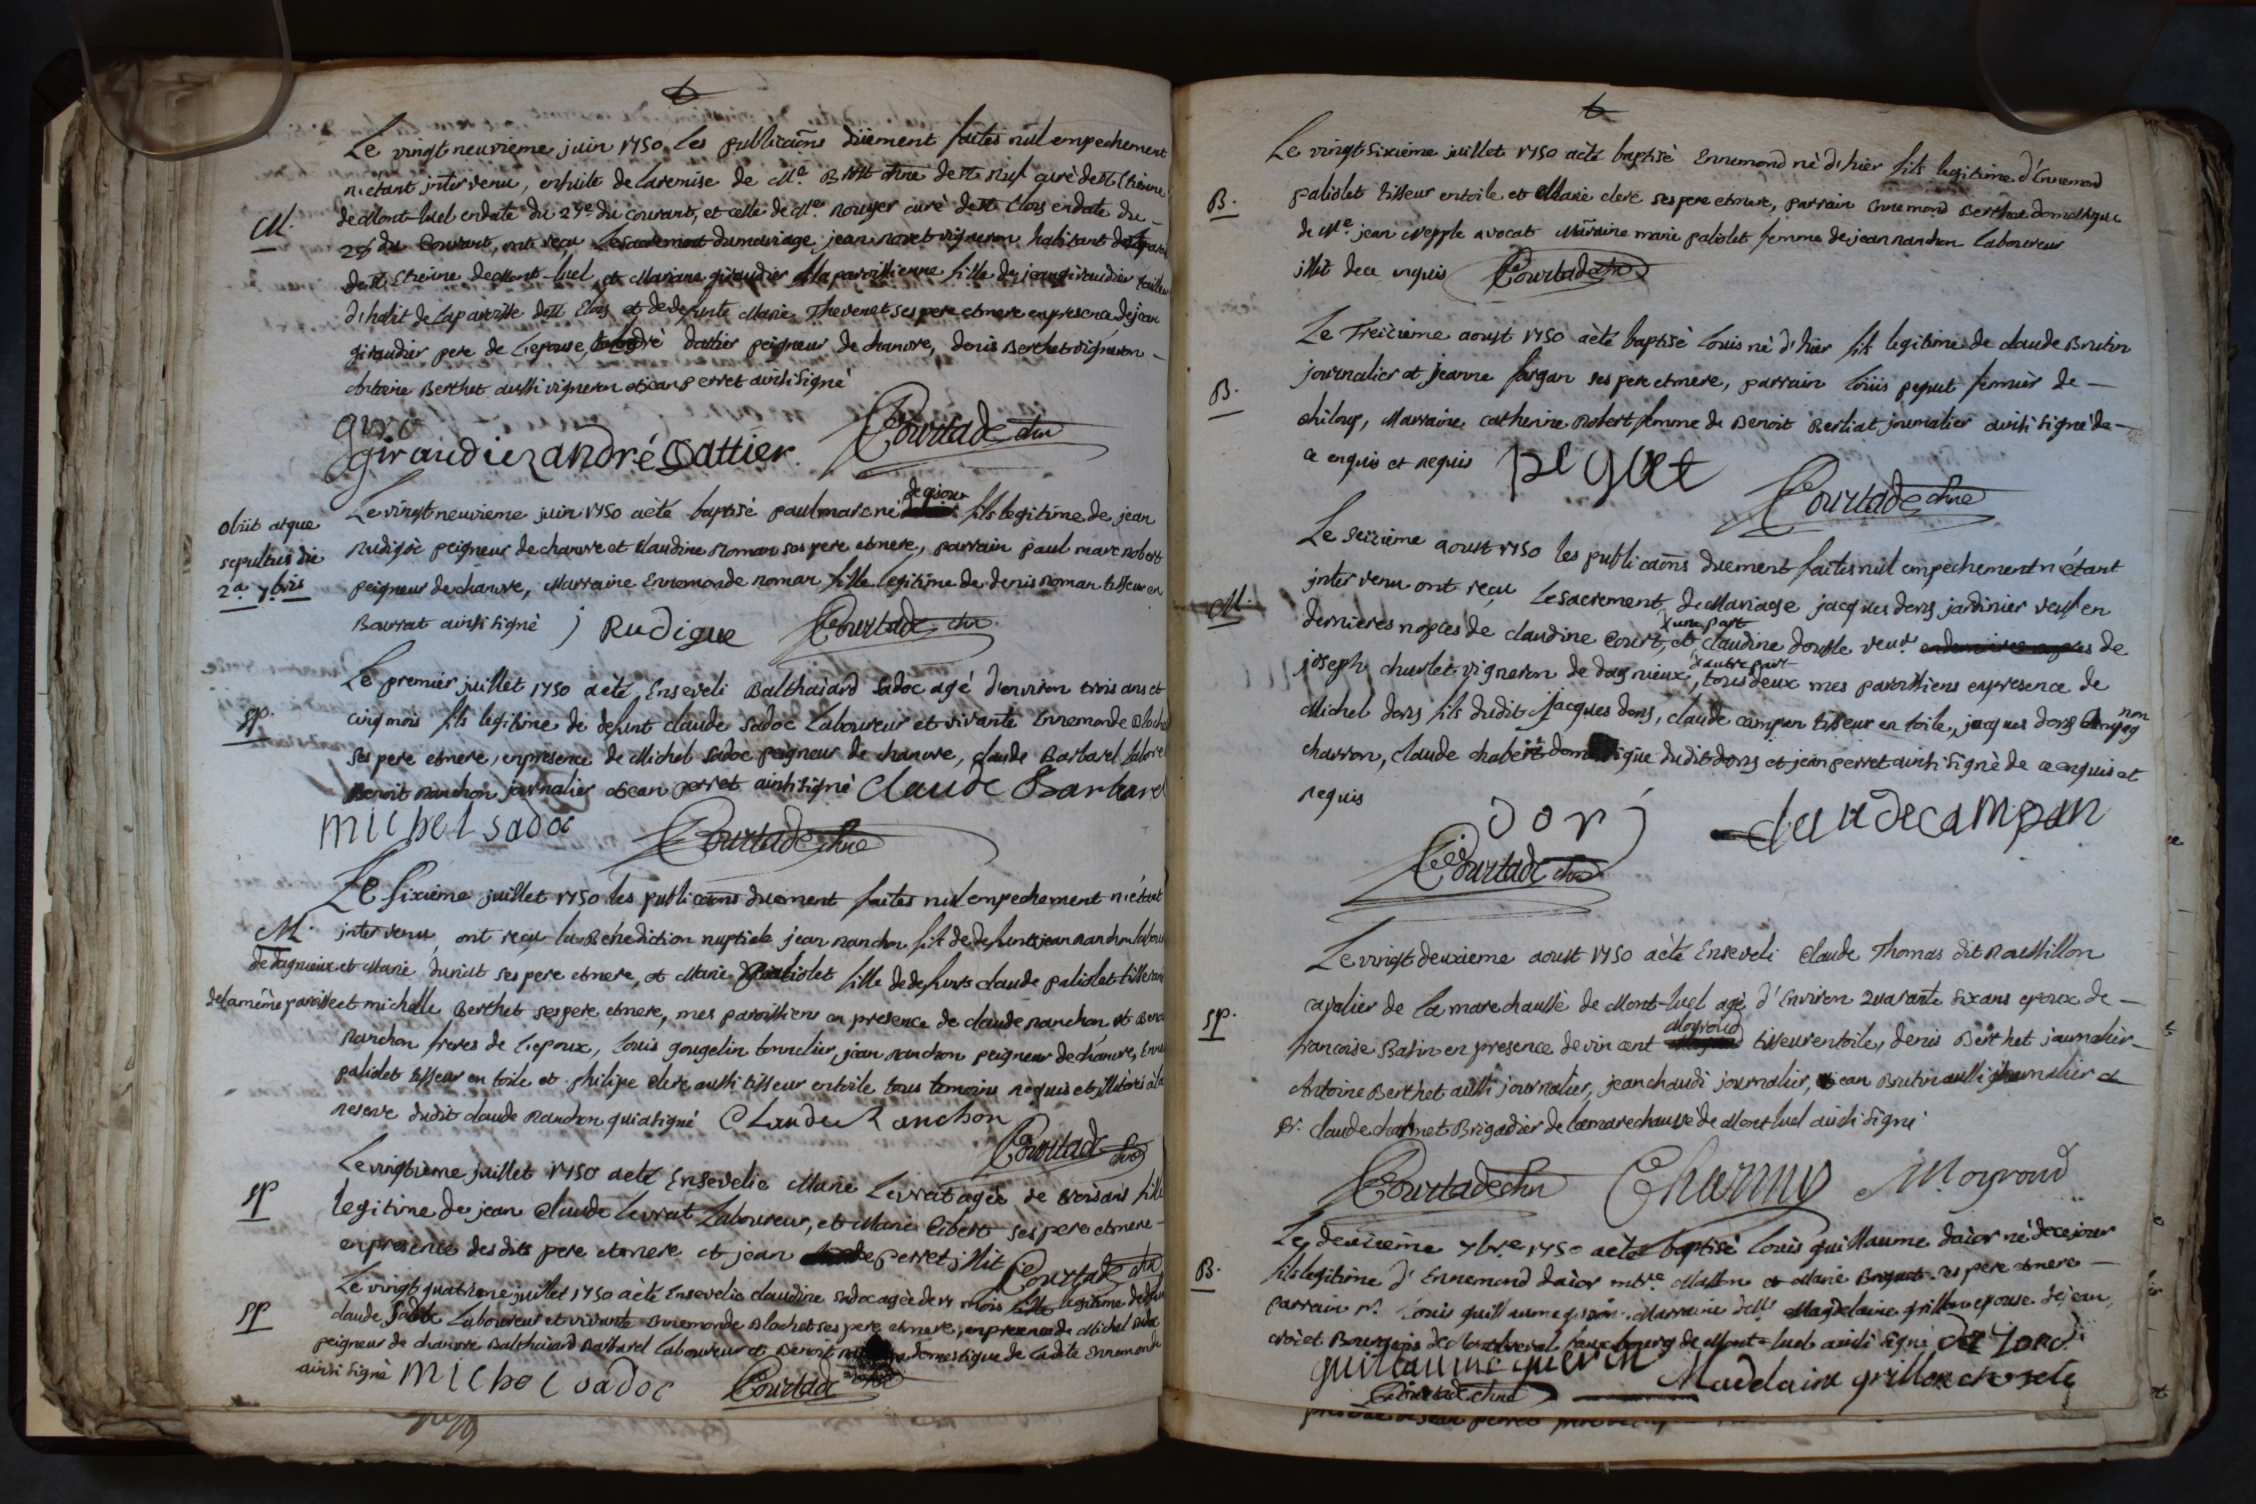 6
Le vingt neuvieme juin 1750 les publicaõns düement faites nul empechement
n'etant intervenu, ensuite de la remise de Me. curé de St Etienne
de Mont-luel en date du 27e du courant, et celle de Me. Rouyer curé de St Elois en date du
28 du Courant, ont reçu le sacrement du mariage jean vigneron habitant de la paroi
de St Etienne de Mont-luel et Mariane giraudier ma paroissienne fille de jean giraudier tailleur
d'habit de la paroisse de St Elois et de defunte Marie Thevenet ses pere et mere en presence de jean
giraudier pere de l'epouse, andré dattier peigneur de chanvre, denis Berthet vigneron
Antoine Berthet aussi vigneron et jean perret ainsi signé
M.
giro
giraudier andré dattier Courtade chne
obiit atque
sepultus die
2a 7bris
Le vingt neuvieme juin 1750 a été baptisé paul marc né de ce jour fils legitime de jean
Rudigue peigneur de chanvre et Claudine Roman ses pere et mere, parrain paul marc robert
peigneur de chanvre, Marraine Ennemonde roman fille legitime de denis roman tisseur en
Bourrat ainsi signé j Rudigue Courtade chne
Le premier juillet 1750 a été Enseveli Balthazard Sadoc agé d'environ trois ans et
Sp.
cinq mois fils legitime de defunt claude Sadoc Laboureur et vivante Ennemonde Bloche
ses pere et mere, en presence de Michel Sadoc peigneur de chanvre, claude Barbarel labore
Benoit ranchon journalier et jean perret ainsi signé Claude Barbarel
Michel Sadoc Courtade chne
Le sixième juillet 1750 les publicaõns düement faites nul empechement n'étant
M.
intervenu ont reçu la Benediction nuptiale jean ranchon fils de defunt jean ranchon labou
de dagnieux et Marie ses pere et mere, et Marie paliolet fille de defunts claude paliolet tisseran
de la même paroisse et michelle Berthet ses pere et mere, mes paroissiens en presence de claude ranchon et Beno
ranchon freres de l'epoux, Louis gougelin tonnelier, jean ranchon peigneur de chanvre, Enne
paliolet tisseur en toile et philipe clerc aussi tisseur en toile tous temoins requis et illiterés à la
reserve dudit claude ranchon qui a signé Claude Ranchon
Courtade chne
Le vingtième juillet 1750 a été Ensevelie Marie Levrat agée de trois ans fille
Sp
legitime de jean Claude Levrat Laboureur, et Marie Cibert ses pere et mere
en presence des dits pere et mere et jean perret illit Courtade chne
Le vingt quatrieme juillet 1750 a été Ensevelie claudine Sadoc agée de mois fille legitime de defun
Sp
claude Sadoc Laboureur et vivante Ennemonde Blochet ses pere et mere, en presence de Michel Sadoc
peigneur de chanvre Balthazard Barbarel Laboureur et Benoit domestique de ladite Ennemonde
ainsi signé Michel Sadoc Courtade chne
6
Le vingt sixième juillet 1750 a été baptisé Ennemond né d'hier fils legitime d'Ennemond
B.
paliolet tisseur en toile et Marie clerc ses pere et mere, parrain Ennemond Berthet domestique
de Me. jean Nepple avocat Marraine marie paliolet femme de jean ranchon laboureur
illit de ce requis Courtade chne
Le Treizième aoust 1750 a été baptisé louis né d'hier fils legitime de claude Brutin
B.
journalier et jeanne fargan ses pere et mere, parrain Louis peguet fermier de
chiloup, Marraine catherine Robert femme de Benoit Berliat journalier ainsi signé de
ce enquis et requis peguet
Courtade chne
Le seizième aoust 1750 les publicaõns düement faites nul empechement n'étant
M.
intervenu ont reçu le sacrement de Mariage jacques dory jardinier veuf en
dernieres nopces de claudine Court, d'une part et claudine double veuve de
joseph churlet vigneron de dagnieux, d'autre part tous deux mes paroissiens en presence de
Michel dory fils dudit jacques dory, claude campan tisseur en toile, jacques dory
charron, claude chabert domestique dudit dory et jean perret ainsi signé de ce enquis et
requis dory claude campan
Courtade chne
Le vingt deuxieme aoust 1750 a été Enseveli Claude Thomas dit Roussillon
Sp.
cavalier de la marechaussé de Mont-luel agé d'Environ quarante six ans epoux de
francoise Basin en presence de vincent Moyroud tisseur en toile, denis Berthet journalier
Antoine Berthet aussi journalier, jean chaudi journalier, jean Brutin aussi journalier et
Sr. Claude charmet Brigadier de la marechaussé de Mont luel ainsi signé
Courtade chne Charmet Moyroud
Le deuxième 7bre 1750 a été baptisé louis guillaume daior né de ce jour
B.
fils legitime d'Ennemond daior mtre Masson et Marie ses pere et mere
parrain Sr. Louis guillaume guerin. Marraine delle Magdelaine grillon epouse de jean
croset Bourgeois fauxbourg de Mont-luel ainsi signé
guillaume guerin Madelaine grillon croset
Courtade chne